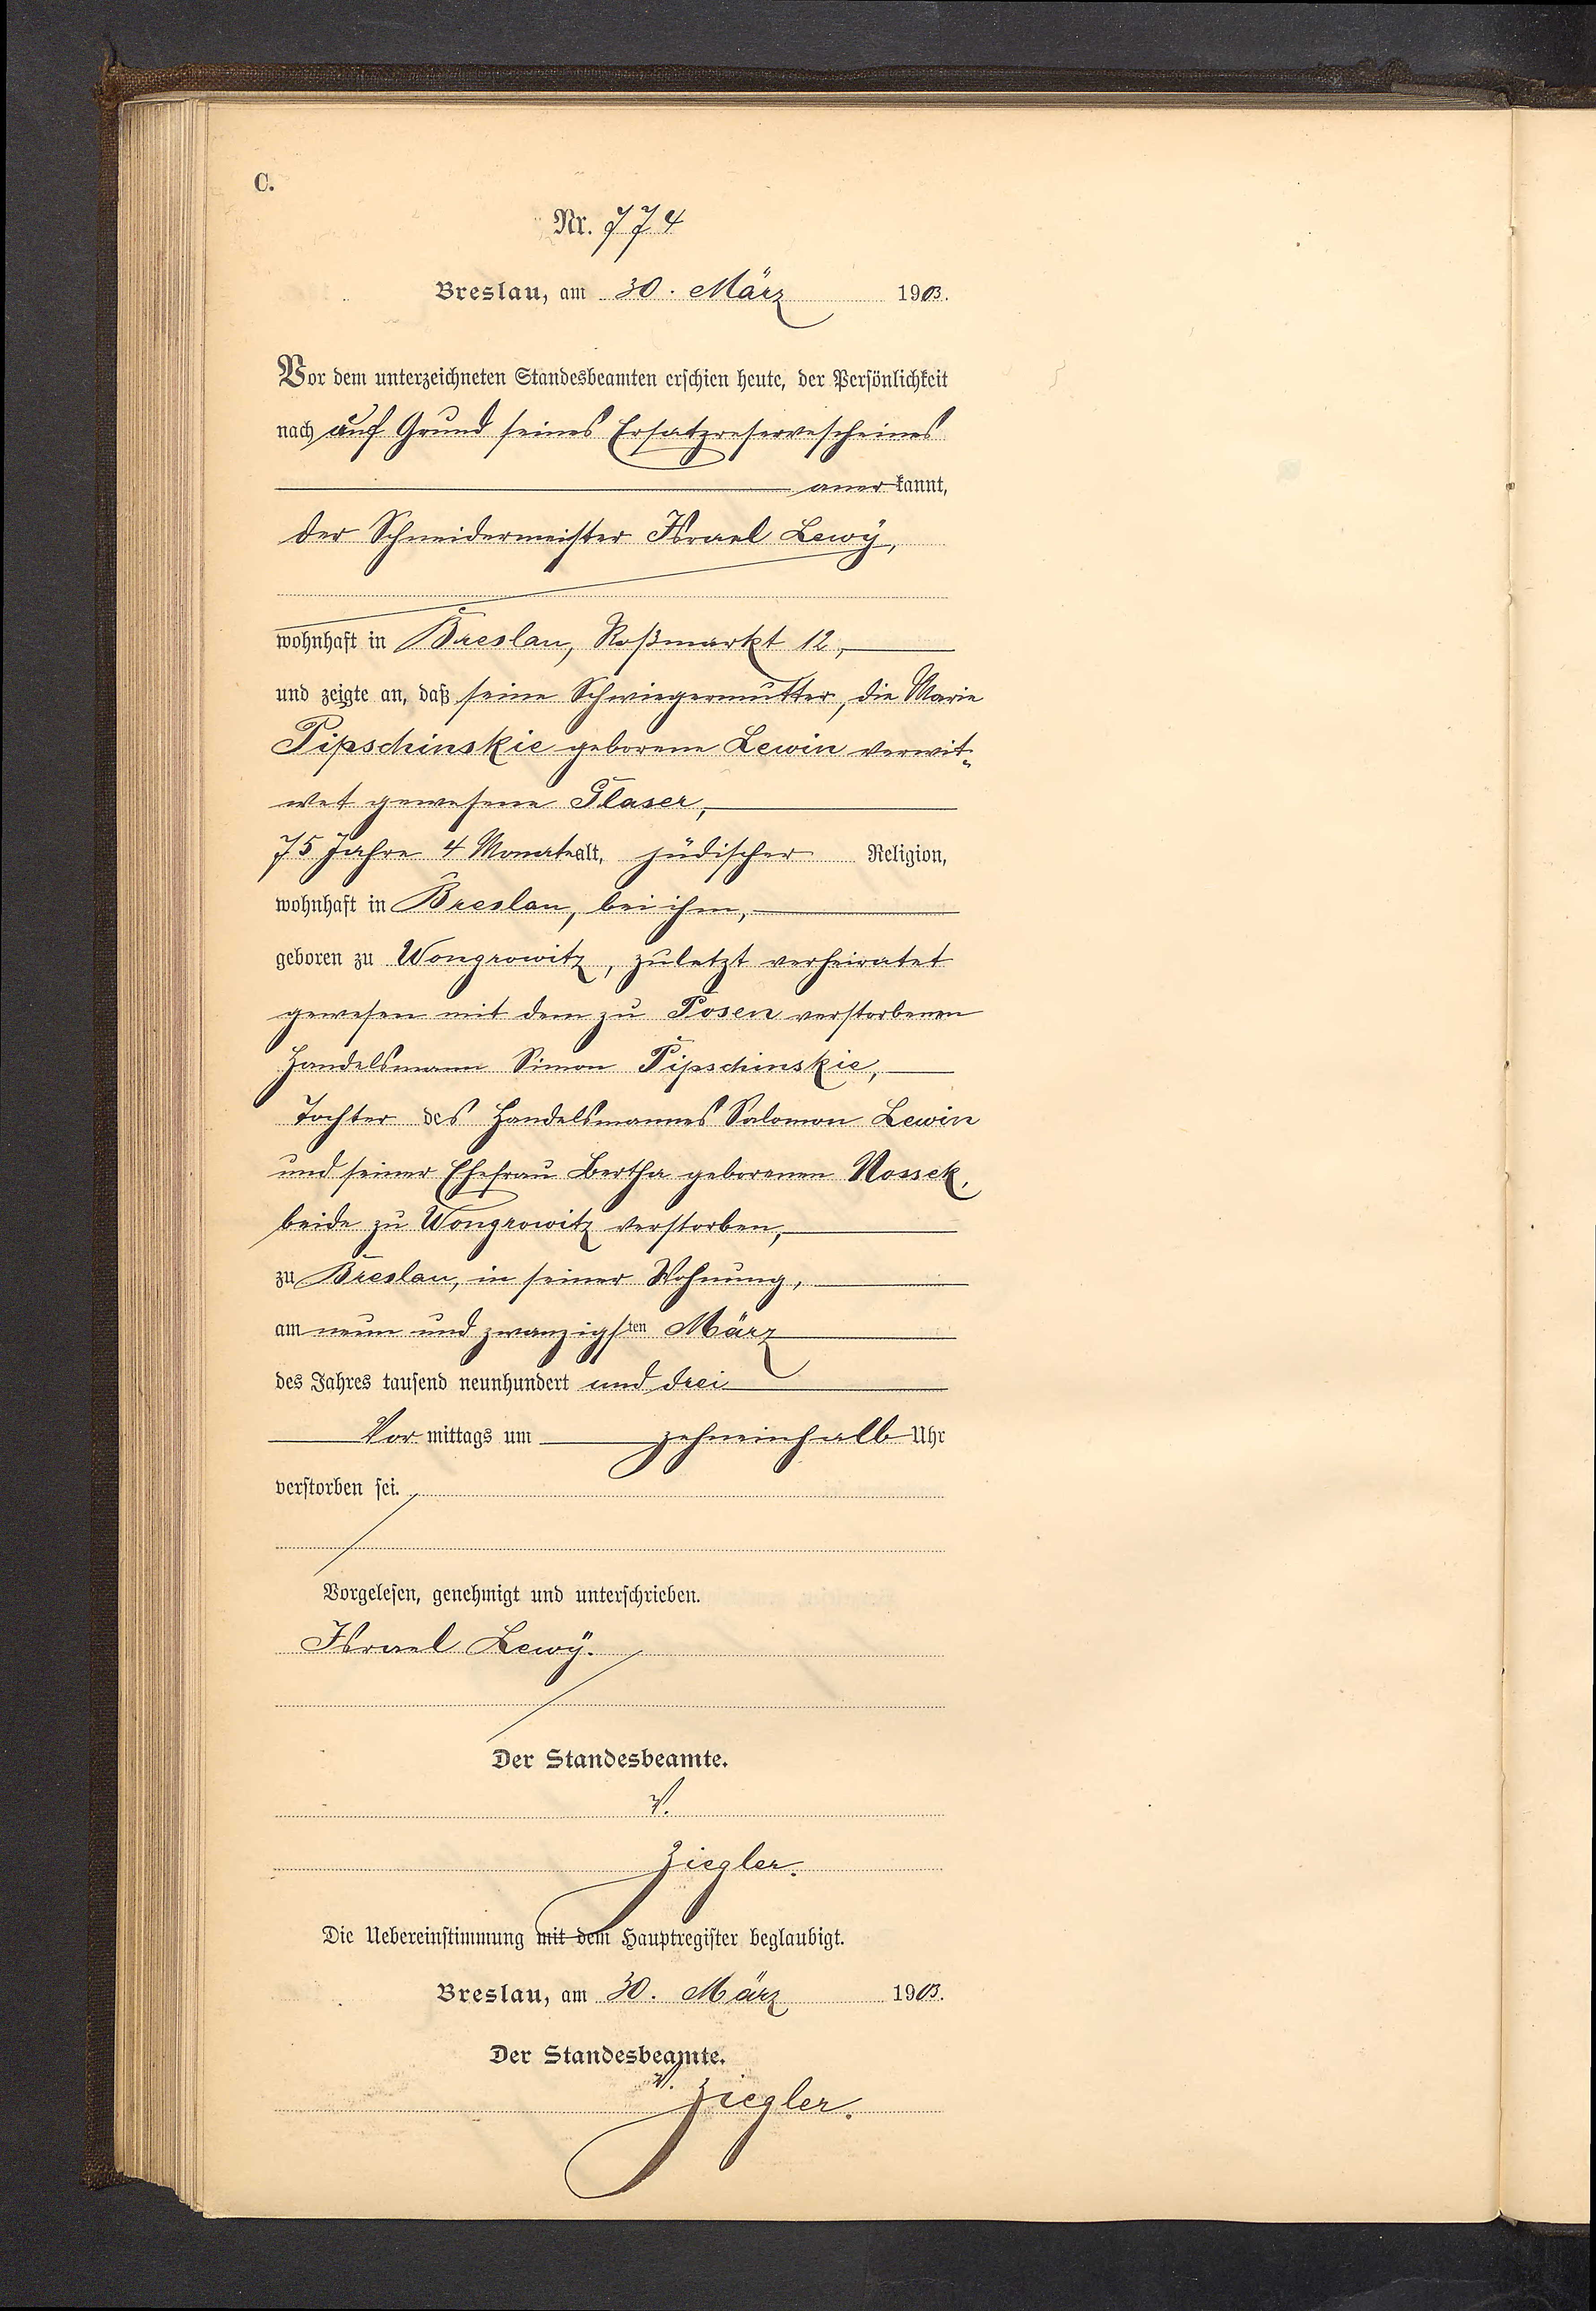 C.
Nr. 774
Breslau, am 30. März 1903.
Vor dem unterzeichneten Standesbeamten erschien heute, der Persönlichkeit
nach auf Grund seines Ersatzreservescheines
anerkannt,
der Schneidermeister Israel Lewÿ,
wohnhaft in Breslau, Roßmarkt 12,
und zeigte an, daß seine Schwiegermutter, die Marie
Pipschinskie geborene Lewin verwit=
wet gewesene Glaser,
75 Jahre 4 Monate alt, jüdischer Religion,
wohnhaft in Breslau, bei ihm,
geboren zu Wongrowitz, zuletzt verheiratet
gewesen mit dem zu Posen verstorbenen
Handelsmann Simon Pipschinskie,
Tochter des Handelsmannes Salomon Lewin
und seiner Ehefrau Bertha geborenen Nossek,
beide zu Wongrowitz verstorben,
zu Breslau, in seiner Wohnung,
am neun und zwanzigsten März
des Jahres tausend neunhundert und drei
Vormittags um zehneinhalb Uhr
verstorben sei.
Vorgelesen, genehmigt und unterschrieben.
Israel Lewÿ.
Der Standesbeamte.
V.
Ziegler.
Die Uebereinstimmung mit dem Hauptregister beglaubigt.
Breslau, am 30. März 1903.
Der Standesbeamte.
V. Ziegler.